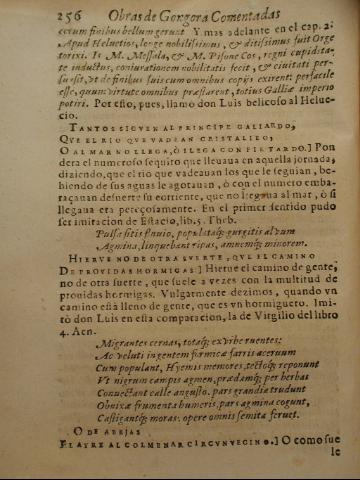 256 Obras de Gongora Comentadas
eorum finibus bellum gerunt. Y mas adelante en el cap. 2.
Apud Heluetios, longe nobilissimus, & ditissimus fuit Orge
torix. Is M. Messala, & M. Pisone Cos, regni cupidita-
te inductus, coniurationem nobilitatis fecit, & ciuitati per-
suasit, vt de finibus suis cum omnibus copijs exirent: perfacile
esse, quum virtute omnibus præstarent, totius Galliæ imperio
potiri. Por esto, pues, llamò don Luis belicoso al Helue-
cio.
TANTOS SIGVEN AL PRINCIPE GALLARDO,
QVE EL RIO QVE VADEAN CRISTALINO,
O AL MAR NO LLEGA, O LLEGA CON PIE TARDO.] Pon
dera el numeroso sequito que lleuaua en aquella jornada,
diziendo, que el rio que vadeauan los que le seguian, be-
biendo de sus aguas le agotauan, ò con el numero emba-
raçauan de suerte su corriente, que no llegaua al mar, ò si
llegaua era pereçosamente. En el primer sentido pudo
ser imitacion de Estacio, lib. 5. Theb.
Pulsæ sitis fluuio, populataq; gurgitis alueum
Agmina, linquebant ripas, amnemq; minorem.
HIERVE NO DE OTRA SVERTE, QVE EL CAMINO
DE PROVIDAS HORMIGAS.] Hierue el camino de gente,
no de otra suerte, que suele a vezes con la multitud de
prouidas hormigas. Vulgarmente dezimos, quando vn
camino està lleno de gente, que es vn hormiguero. Imi-
tò don Luis en esta comparacion, la de Virgilio del libro
4. Aen.
Migrantes cernas, totaq; ex vrbe ruentes;
Ac veluti ingentem formicæ farris aceruum
Cum populant, Hyemis memores, tectoq; reponunt
Vt nigrum campis agmen, prædamq; per herbas
Conuectant calle angusto. pars grandia trudunt
Obnixæ frumenta humeris, pars agmina cogunt,
Castigantq; moras: opere omnis semita feruet.
O DE ABEJAS
EL AYRE AL COLMENAR CIRCVNVEZINO.] O como sue
le